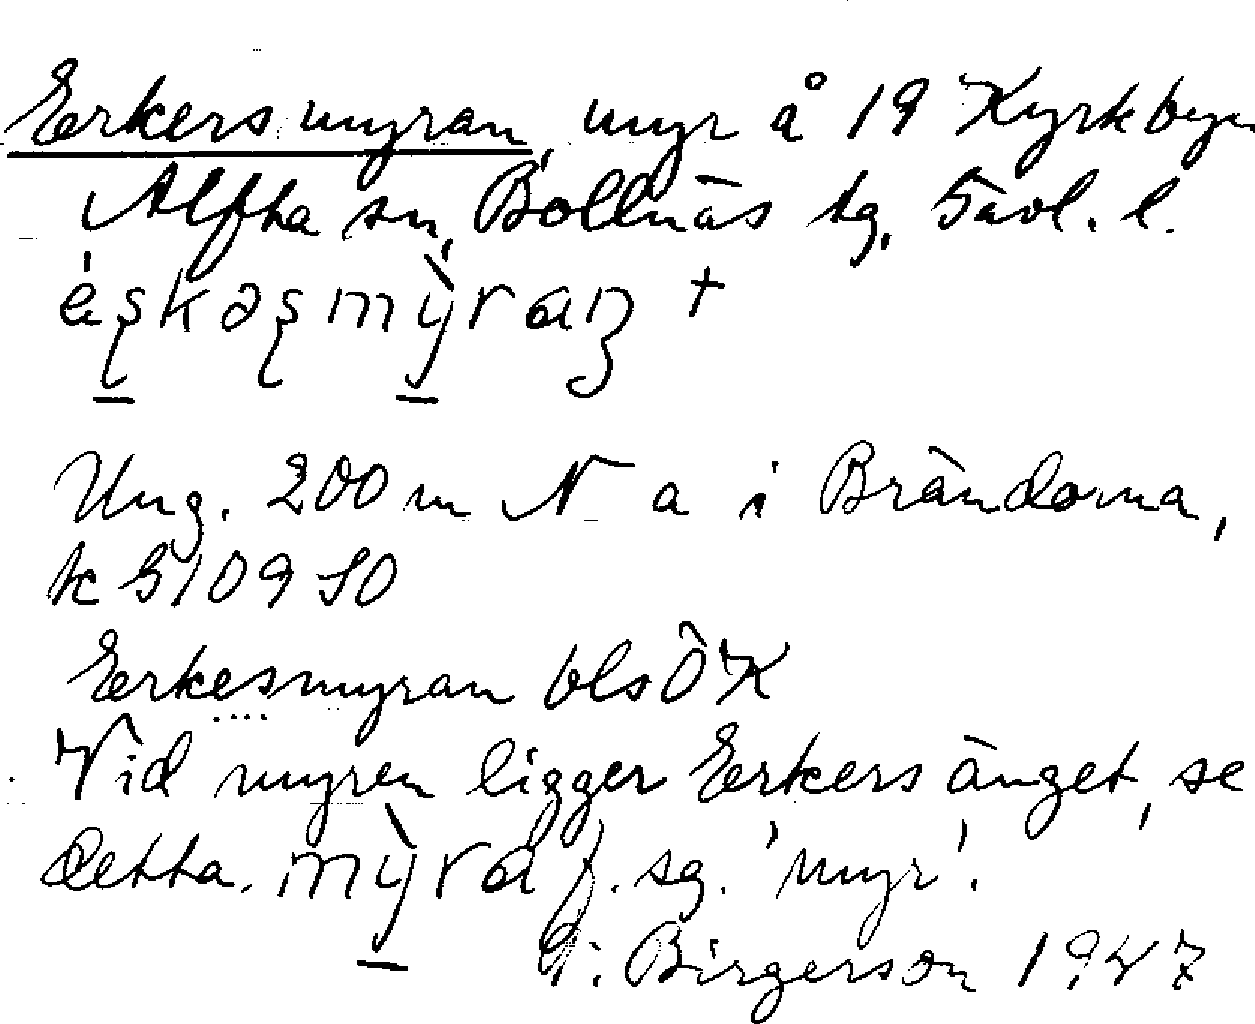 Eerkersmyran, myr å 19 Kyrkbyn
Alfta sn, Bollnäs tg, Gävl. l.
Ung. 200 m N a i Brändorna,
k 5109 SO
Eerkesmyran bls ÖK
Vid myren ligger Eerkersänget, se
detta. mỳra f. sg. 'myr'.
G. Birgerson 1947